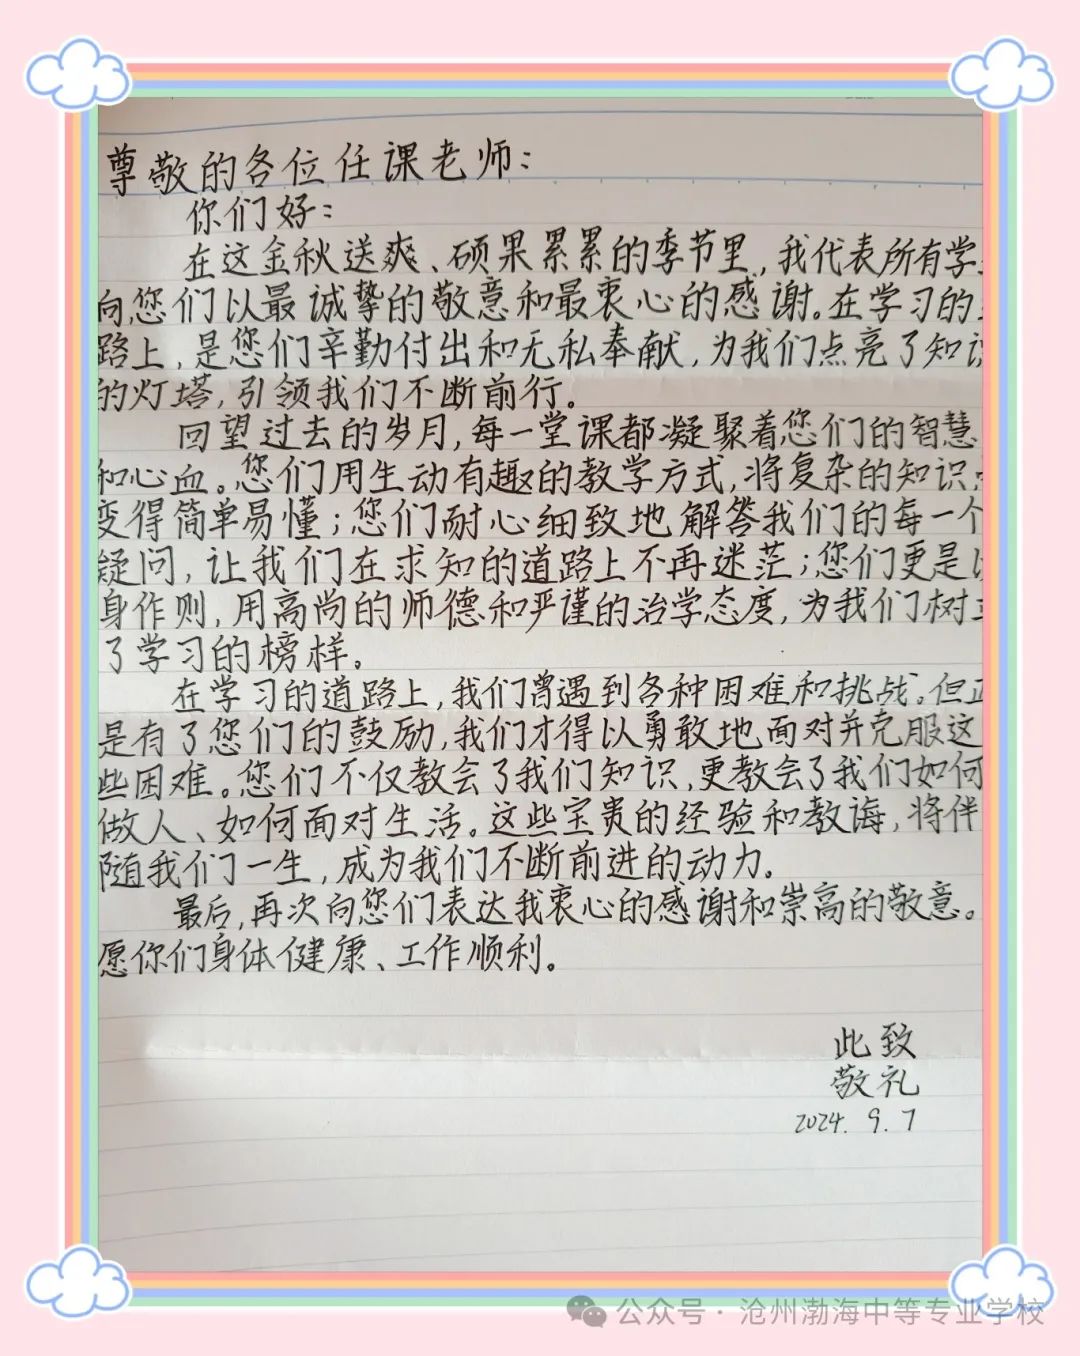 尊敬的各位任课老师：
你们好：
在这金秋送爽、硕果累累的季节里，我代表所有学
向您们以最诚挚的敬意和最衷心的感谢。在学习的
路上，是您们辛勤付出和无私奉献，为我们点亮了知识
的灯塔，引领我们不断前行。
回望过去的岁月，每一堂课都凝聚着您们的智慧
和心血。您们用生动有趣的教学方式，将复杂的知识点
变得简单易懂；您们耐心细致地解答我们的每一个
疑问，让我们在求知的道路上不再迷茫；您们更是以
身作则，用高尚的师德和严谨的治学态度，为我们树立
了学习的榜样。
在学习的道路上，我们曾遇到各种困难和挑战。但正
是有了您们的鼓励，我们才得以勇敢地面对并克服这
些困难。您们不仅教会了我们知识，更教会了我们如何
做人、如何面对生活。这些宝贵的经验和教诲，将伴
随我们一生，成为我们不断前进的动力。
最后，再次向您们表达我衷心的感谢和崇高的敬意。
愿你们身体健康、工作顺利。
此致
敬礼
2024.9.7
公众号·沧州渤海中等专业学校